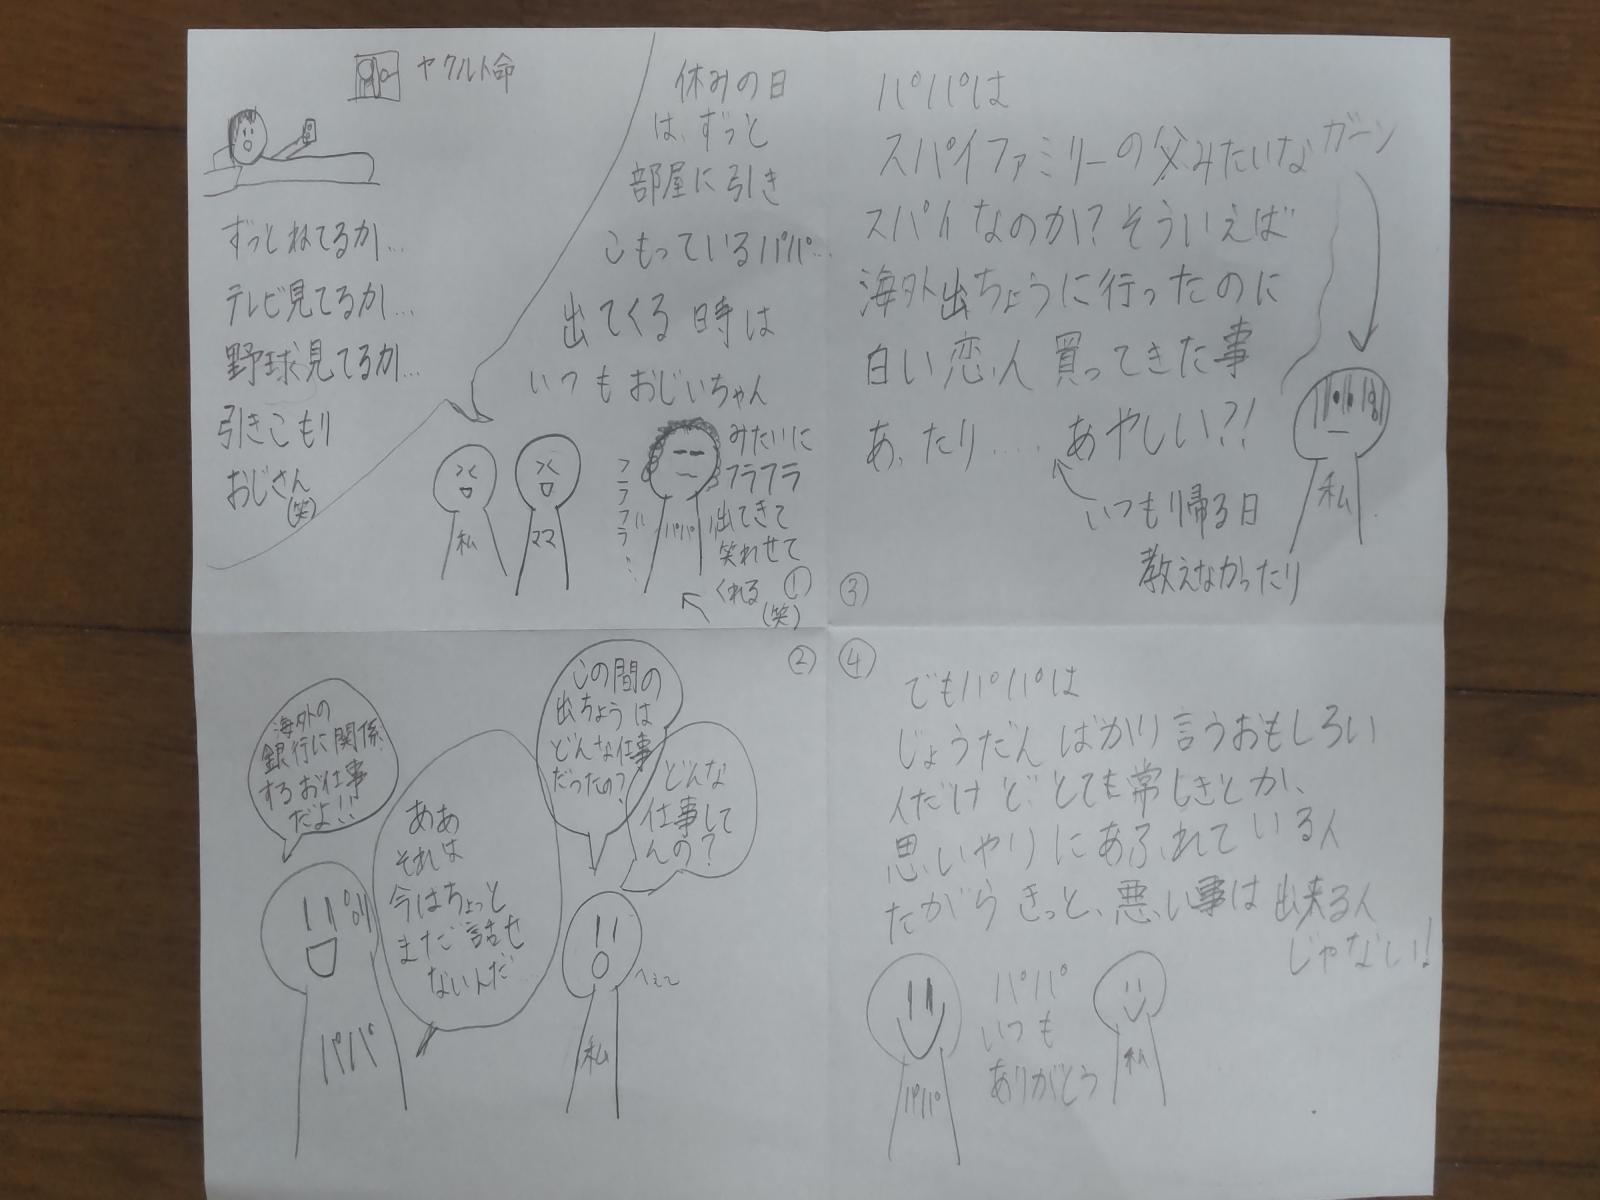 ヤクルト命
ずっとねてるか…
テレビ見てるか…
野球見てるか…
引きこもり
おじさん
(笑)
休みの日
は、ずっと
部屋に引き
こもっているパパ…
出てくる時は
いつもおじいちゃん
みたいに
フラフラ
出てきて
笑わせて
くれる
(笑)
①
フラフラ…
私
ママ
パパ
②
この間の
出ちょうは
どんな仕事
だったの?
どんな
仕事して
んの?
海外の
銀行に関係
するお仕事
だよ!!
ああ
それは
今はちょっと
まだ話せ
ないんだ…
へぇ〜
パパ
私
③
パパは
スパイファミリーの父みたいな
スパイなのか?そういえば
海外出ちょうに行ったのに
白い恋人買ってきた事
あったり.... あやしい?!
いつも帰る日
教えなかったり
ガーン
私
④
でもパパは
じょうだんばかり言うおもしろい
人だけど、とても常しきとか、
思いやりにあふれている人
だからきっと、悪い事は出来る人
じゃない!
パパ
いつも
ありがとう
パパ
私